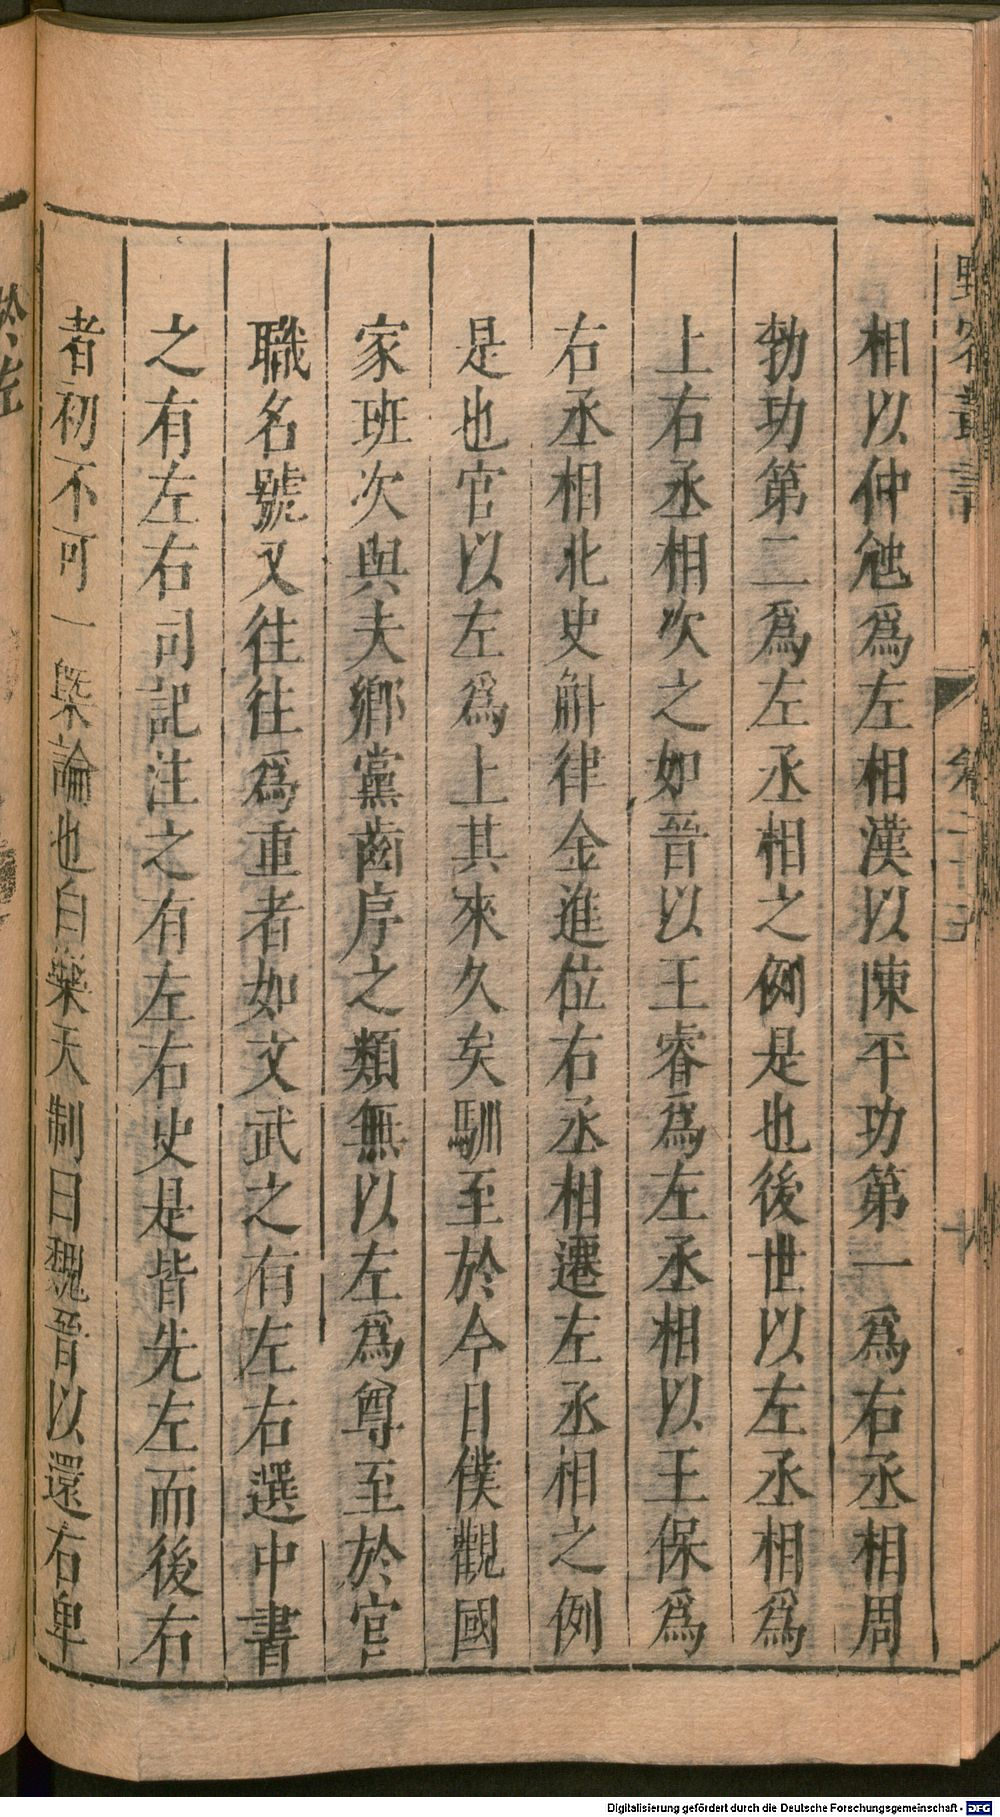 相以仲虺爲左相漢以陳平功第一爲右丞相周
勃功第二爲左丞相之例是也後世以左丞相爲
上右丞相次之如晉以王睿爲左丞相以王保爲
右丞相北史斛律金進位右丞相遷左丞相之例
是也官以左爲上其來久矣馴至於今日僕觀國
家班次與夫鄉黨齒序之類無以左爲尊至於官
職名號又往往爲重者如文武之有左右選中書
之有左右司記注之有左右史是皆先左而後右
者初不可一槩論也白樂天制曰魏晉以還右卑
於左
野客叢書
卷二十五
十
Digitalisierung gefördert durch die Deutsche Forschungsgemeinschaft - DFG